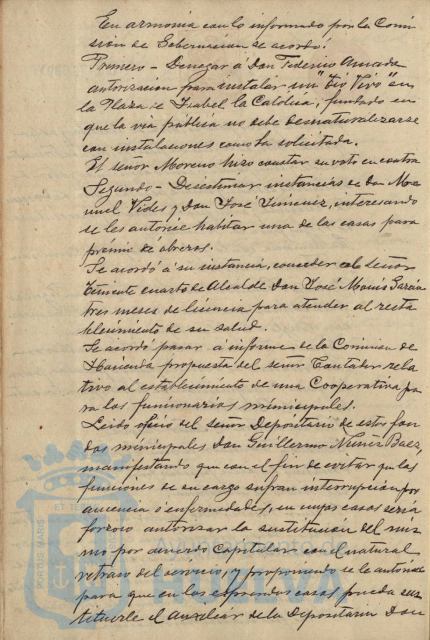 En armonia con lo informado por la Comi-
sión de Gobernacion se acordó:
Primero - Denegar á Don Federico Amada
autorización para instalar un "Tio Vivo" en
la Plaza de Isabel la Católica, fundado en
que la via pública no debe desnaturalizarse
con instalaciones como la solicitada.
El señor Moreno hizo constar su voto en contra
Segundo - Desestimar instancias de Don Ma-
nuel Vides y Don José Jimenez, interesando
se les autorice habitar una de las casas para
premio de obreros.
Se acordó á su instancia, conceder al señor
Teniente cuarto de Alcalde Don José Garcia
tres meses de licencia para atender al resta
blecimiento de su salud.
Se acordó pasar á informe de la Comision de
Hacienda propuesta del señor Contador rela
tivo al establecimiento de una Cooperativa pa
ra los funcionarios municipales.
Leido oficio del señor Depositario de estos fon
dos municipales Don Guillermo Nuñez Baez,
manifestando que con el fin de evitar que las
funciones de su cargo sufran interrupcion por
ausencia ó enfermedades, en cuyos casos seria
forzoso autorizar la sustitución del mis
mo por acuerdo capitular con el natural
retraso del servicio, y proponiendo se le autorice
para que en los expresados casos pueda sus
tituirle el Auxiliar de la Depositaria Don
PORTUS MARIS
ET TE
Ayuntamiento de
HUELVA